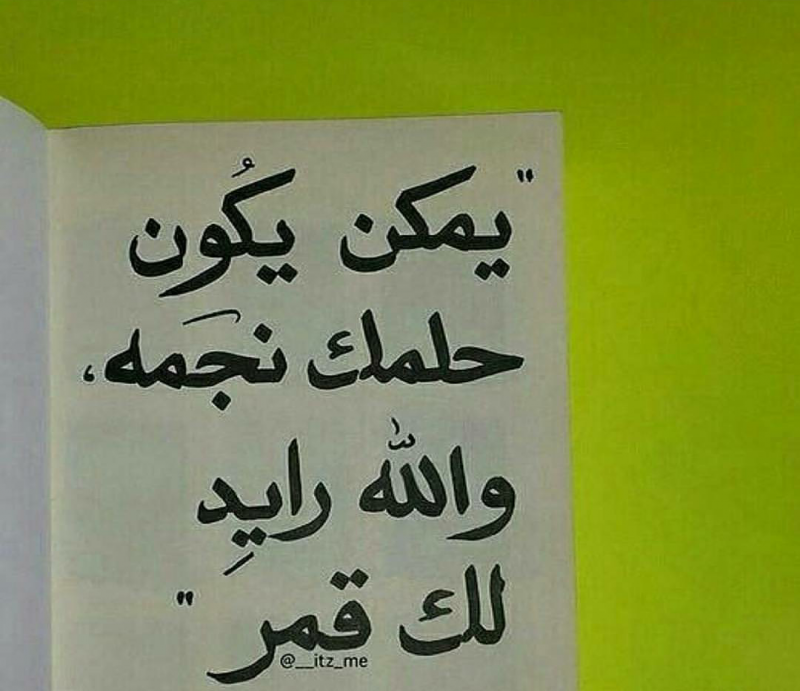 "يمكن يكُون
حلمك نجَمه،
واللّٰه رايدِ
لك قمر"
@__itz_me